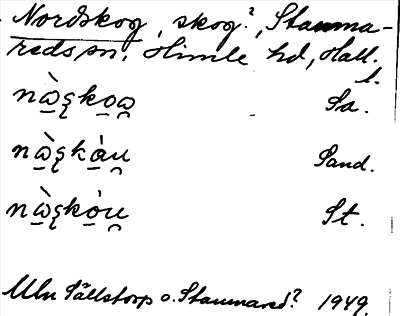 Nordskog, skog?, Stamna-
reds sn, Himle hd, Hall.
l.
nὼʂko̯ω̯ Sa.
nὼʂkὰu̯ Sand.
nὼʂkòu̯ St.
Uln Sällstorp o. Stamnared? 1949.